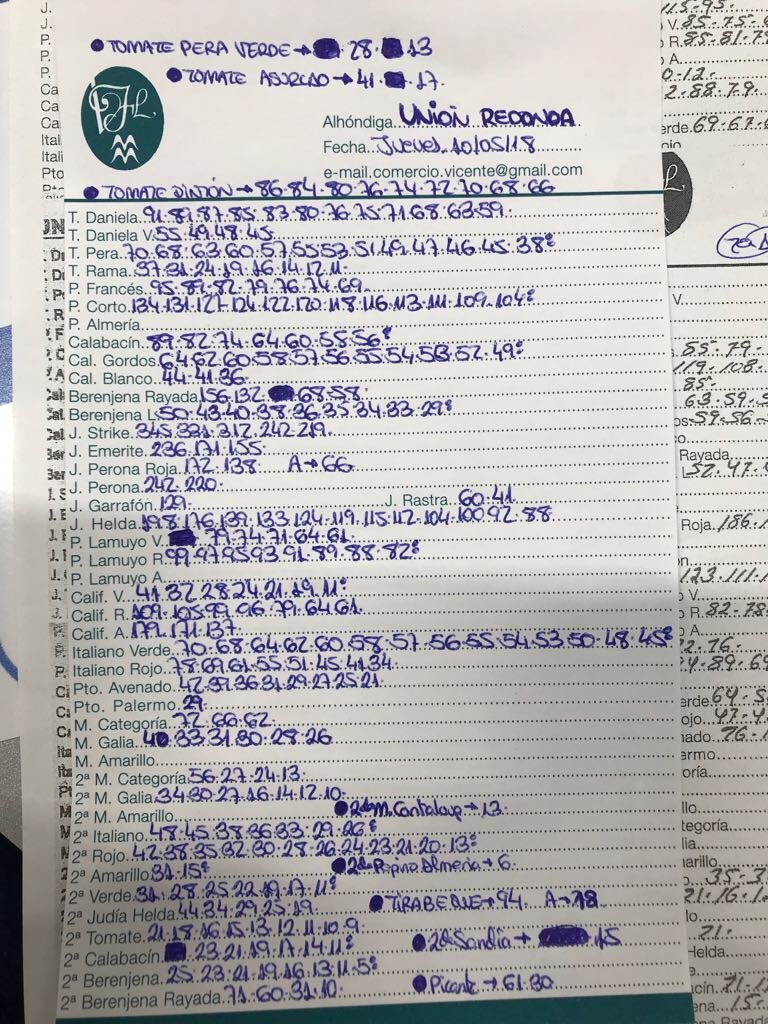 • TOMATE PERA VERDE → 28. 13
• TOMATE ASURCAO → 41. 17.
Alhóndiga UNION REDONDA
Fecha Jueves, 10/05/18
e-mail.comercio.vicente@gmail.com
• TOMATE PINTÓN → 86.84.80.76.74.72.70.68.66
T. Daniela 91.89.87.85.83.80.76.75.71.68.63.59.
T. Daniela V. 55.49.48.45
T. Pera 70.68.63.60.57.55.53.51.49.47.46.45.38º
T. Rama 37.31.24.19.16.14.12.11.
P. Francés 95.89.82.79.76.74.69.
P. Corto 134.131.127.124.122.120.118.116.113.111.109.104º
P. Almería
Calabacín 89.82.74.64.60.58.56º
Cal. Gordos 64.62.60.58.57.56.55.54.53.52.49º
Cal. Blanco 44.41.36
Berenjena Rayada 156.132. 68.58.
Berenjena L. 50.43.40.38.36.35.34.33.29º
J. Strike 345.331.312.242.219.
J. Emerite 236.171.155
J. Perona Roja 172.138. A→66
J. Perona 242.220.
J. Garrafón 129. J. Rastra. 60.41.
J. Helda 198.176.139.133.124.119.115.112.104.100.92.88
P. Lamuyo V. 79.74.71.64.61.
P. Lamuyo R. 99.97.95.93.91.89.88.82º
P. Lamuyo A.
Calif. V. 41.32.28.24.21.19.11º
Calif. R. 109.105.99.96.79.64.61.
Calif. A. 179.171.137.
Italiano Verde 70.68.64.62.60.58.57.56.55.54.53.50.48.45º
Italiano Rojo 78.69.61.55.51.45.41.34.
Pto. Avenado 42.39.36.31.29.27.25.21
Pto. Palermo 29.
M. Categoría 72.66.62.
M. Galia 40.33.31.30.28.26
M. Amarillo
2ª M. Categoría 56.27.24.13.
2ª M. Galia 34.30.27.16.14.12.10.
2ª M. Amarillo • 2ª M. Cantaloup → 13.
2ª Italiano 48.45.38.36.33.29.26º
2ª Rojo 42.38.35.32.30.28.26.24.23.21.20.13º
2ª Amarillo 31.15º • 2ª Pepino Almeria → 6
2ª Verde 31.28.25.22.19.17.11º
2ª Judía Helda 44.34.29.25.19. • TIRABEQUE → 94. A→78
2ª Tomate 21.18.16.15.13.12.11.10.9.
2ª Calabacín 23.21.19.17.14.11º • 2ª Sandía → 15
2ª Berenjena 25.23.21.19.16.13.11.5º
2ª Berenjena Rayada 71.60.31.10. • Picante → 61.30